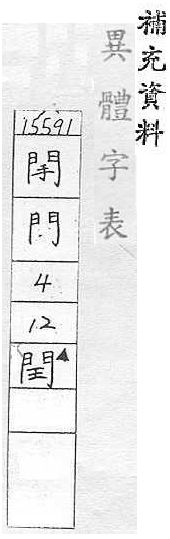 補充資料
異體字表
15591
門
4
12
閏